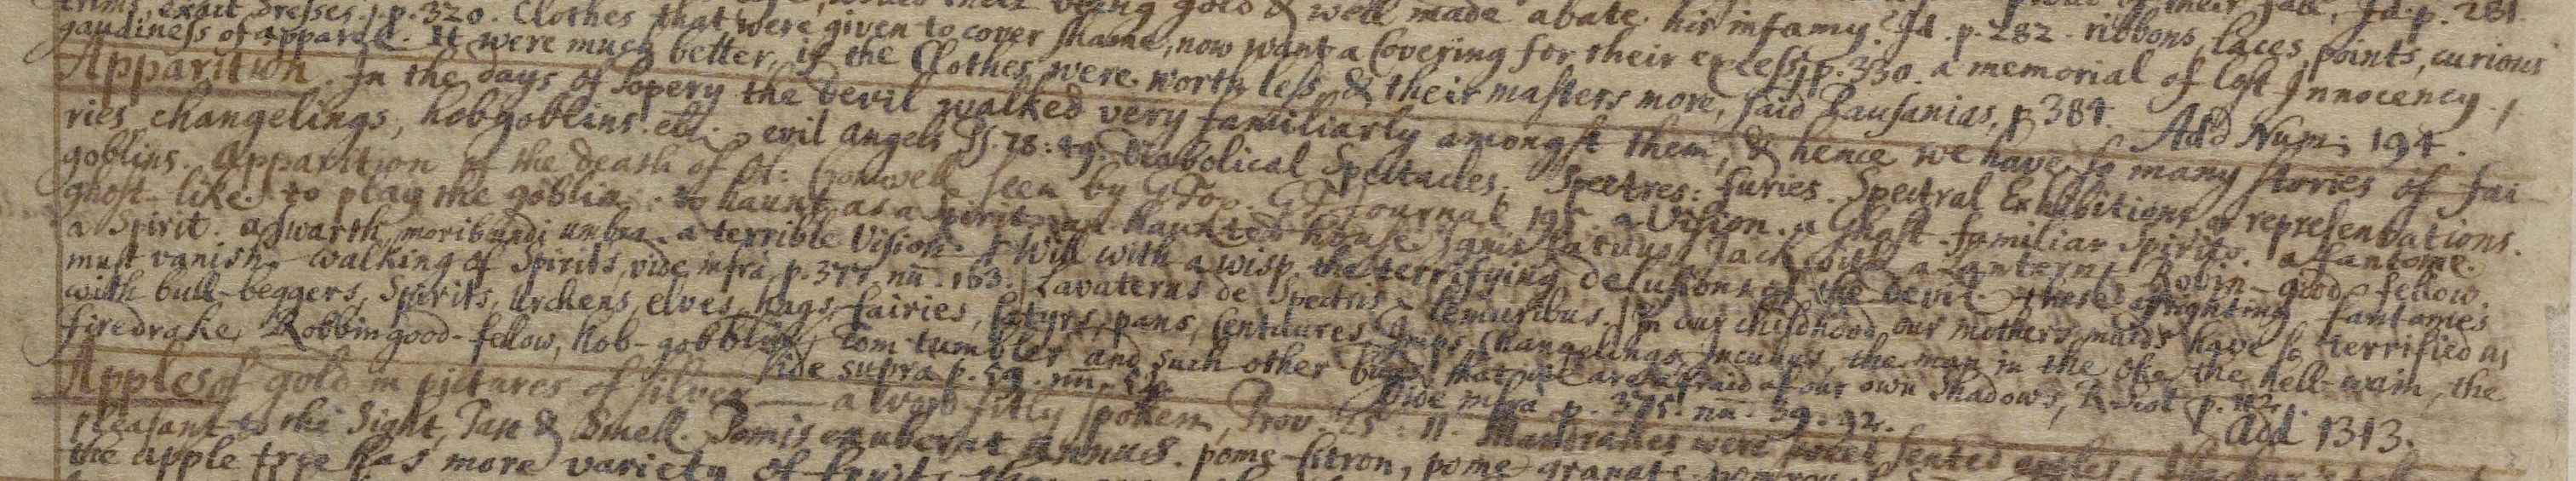 exact dresses, p. 320. Clothes that were given to cover shame, now want a Covering for their excess, p. 330. a memorial of lost Innocency,
gaudiness of apparel. It were much better, if the Clothes were worth less, & their masters more, said Pausanias, p 384. Add Num: 194.
Apparition. In the days of Popery the devil walked very familiarly amongst them, & hence we have so many stories of fai
ries changelings, hobgoblins. evil angels Ps. 78:49. Diabolical Spectacles. Spectres: furies. Spectral Exhibitions or representations.
goblins. Apparition of the death of O: Cromwell seen by G Fox. GF Journal 195. a Vision. a Ghost. familiar Spirits. a fantome.
ghost-like. to play the goblin. to haunt as a Spirit. an haunted house Ignis fatuus, Jack with a Lantern. Robin-good-fellow.
a Spirit. a swarth, moribundi umbra. a terrible Vision. Will with a wisp. the terrifying delusions of the devil. these afrighting fantomes
must vanish. walking of Spirits, vide infra, p. 377. nu. 163. Lavaterus de Spectris & Lemuribus. In our childhood our mothers maids have so terrified us
with bull-beggers, Spirits, Urchens, elves, hags, fairies, satyrs, pans, Centaures, Changelings, Incubus, the man in the oke, the hell-wain, the
firedrake, Robbin good-fellow, hob-gobblin, Tom tumbler and such other bugs that we are afraid of our own Shadows, p. 112.
Vide supra p. 59. Vide infra p. 375. nu. 39. 92. Add 1313.
Apples of gold in pictures of silver — a word fitly spoken, Prov. 25:11. Mandrakes were sweet sented
pleasant to the Sight, Tast & Smell. Pomis exuberat annus. pome-Citron, pome-granate
the apple tree has more variety of fruits